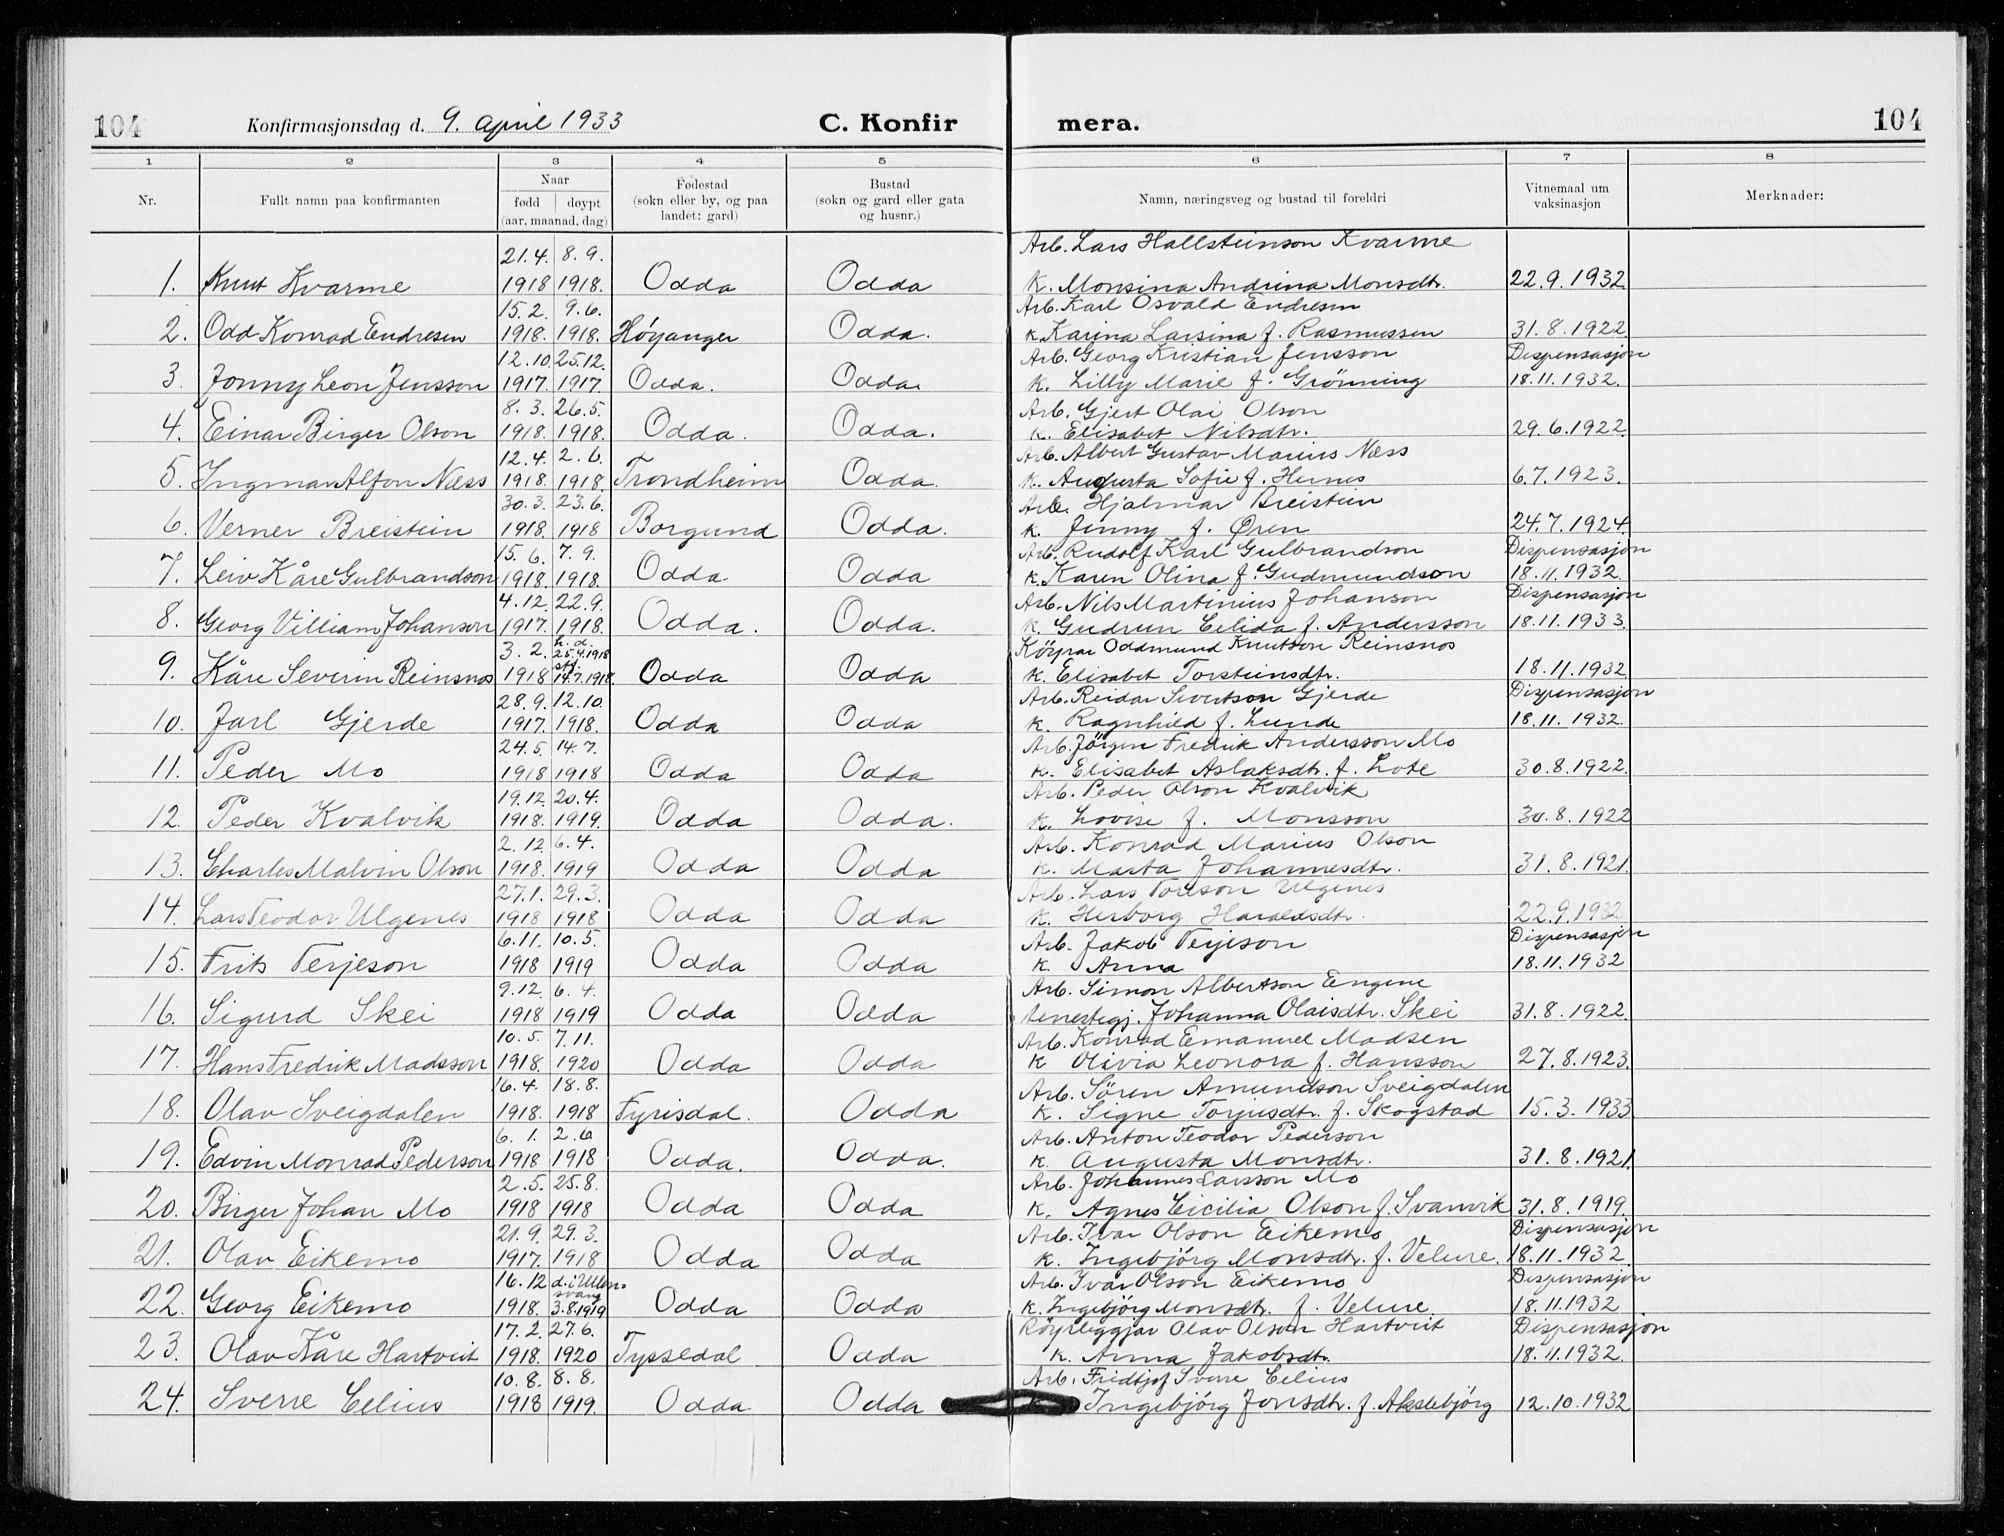 104 Konfirmasjonsdag d. 9. april 1933 C. Konfir mera. 104
1 2 3 4 5 6 7 8
Nr. Fullt namn paa konfirmanten Naar født døypt (aar, maanad, dag) Fødestad (sokn eller by, og paa landet: gard) Bustad (sokn og gard eller gata og husnr.) Namn, næringsveg og bustad til foreldri Vitnemaal um vaksinasjon Merknader:
21.4. 8.9. Arb. Lars Hallsteinson Kvarme
1. Knut Kvarme 1918 1918. Odda Odda K. Monsina Andrina Monsdtr. 22.9.1932
15.2. 9.6. Arb. Karl Osvald Endresen
2. Odd Konrad Endresen 1918. 1918. Høyanger Odda. K. Karina Larsina f. Rasmussen 31.8.1922
12.10. 25.12. Arb. Georg Kristian Jensson Dispensasjon
3. Jonny Leon Jensson 1917. 1917. Odda. Odda. K. Lilly Marie f. Grönning 18.11.1932.
8.3. 26.5. Arb. Gjert Olai Olson
4. Einar Birger Olson 1918. 1918. Odda. Odda. K. Elisabet Nilsdtr. 29.6.1922.
12.4. 2.6. Arb. Albert Gustav Marius Næss
5. Ingmar Alfon Næss 1918. 1918. Trondheim Odda. K. Augusta Sofie f. Hernes 6.7.1923.
30.3. 23.6. Arb. Hjalmar Breistein
6. Verner Breistein 1918. 1918 Borgund Odda. K. Jenny f. Øren 24.7.1924.
15.6. 7.9. Arb. Rudolf Karl Gulbrandson Dispensasjon
7. Leiv Kåre Gulbrandson 1918. 1918. Odda Odda K. Karen Olina f. Gudmundson 18.11.1932.
4.12. 22.9. Arb. Nils Martinius Johanson Dispensasjon
8. Georg Villiam Johanson 1917. 1918. Odda. Odda. K. Gudrun Celida f. Andersson 18.11.1933.
3.2. h.d. 25.4.1918 Köyrar Oddmund Knutson Reinsnos
9. Kåre Severin Reinsnos 1918 stf. 14.7.1918. Odda Odda K. Elisabet Torsteinsdtr. 18.11.1932
28.9. 12.10. Arb. Reidar Sivertson Gjerde Dispensasjon
10. Jarl Gjerde 1917. 1918. Odda Odda K. Ragnhild f. Lunde 18.11.1932.
24.5. 14.7. Arb. Jörgen Fredrik Andersson Mo
11. Peder Mo 1918 1918 Odda Odda K. Elisabet Aslaksdtr. f. Lote 30.8.1922.
19.12. 20.4. Arb. Peder Olson Kvalvik
12. Peder Kvalvik 1918. 1919. Odda Odda. K. Lovise f. Monsson 30.8.1922
2.12. 6.4. Arb. Konrad Marius Olson
13. Charles Malvin Olson 1918. 1919 Odda Odda K. Marta Johannesdtr. 31.8.1921.
27.1. 29.3. Arb. Lars Torison Ulgenes
14. Lars Teodor Ulgenes 1918 1918 Odda Odda K. Herborg Haraldsdtr. 22.9.1932
6.11. 10.5. Arb. Jakob Terjeson Dispensasjon
15. Frits Terjeson 1918 1919 Odda Odda K. Anna 18.11.1932
9.12. 6.4. Arb. Simon Albertson Engene
16. Sigurd Skei 1918 1919 Odda Odda tenestegj. Johanna Olaisdtr. Skei 31.8.1922.
10.5. 7.11. Arb. Konrad Emanuel Madsen
17. Hans Fredrik Madsson 1918. 1920 Odda Odda K Olivia Leonora f. Hansson 27.8.1923.
16.4. 18.8. Arb. Sören Amundson Sveigdalen
18. Olav Sveigdalen 1918. 1918 Fyrisdal. Odda K. Signe Torjusdtr. f. Skogstad 15.3.1933
6.1. 2.6 Arb. Anton Teodor Pederson
19. Edvin Monrad Pederson 1918 1918 Odda. Odda. K. Augusta Monsdtr. 31.8.1921.
2.5. 25.8. Arb. Johannes Larsson Mo
20. Birger Johan Mo 1918 1918 Odda Odda K. Agnes Cicilia Olson f. Svanvik 31.8.1919.
21.9. 29.3. Arb. Ivar Olson Eikemo Dispensasjon
21. Olav Eikemo 1917. 1918 Odda Odda K. Ingebjörg Monsdtr. f. Velure. 18.11.1932.
16.12 d. i Ullensvang Arb. Ivar Olson Eikemo Dispensasjon
22. Georg Eikemo 1918. 3.8.1919 Odda Odda K. Ingebjörg Monsdtr. f. Velure. 18.11.1932
17.2. 27.6. Röyrleggjar Olav Olson Hartveit Dispensasjon
23. Olav Kåre Hartveit 1918. 1920 Tyssedal Odda K. Anna Jakobsdtr. 18.11.1932.
10.8. 8.8. Arb. Fridtjof Sverre Celius
24. Sverre Celius 1918 1919. Odda Odda Ingebjörg Jonsdtr. f. Akslebjörg 12.10.1932